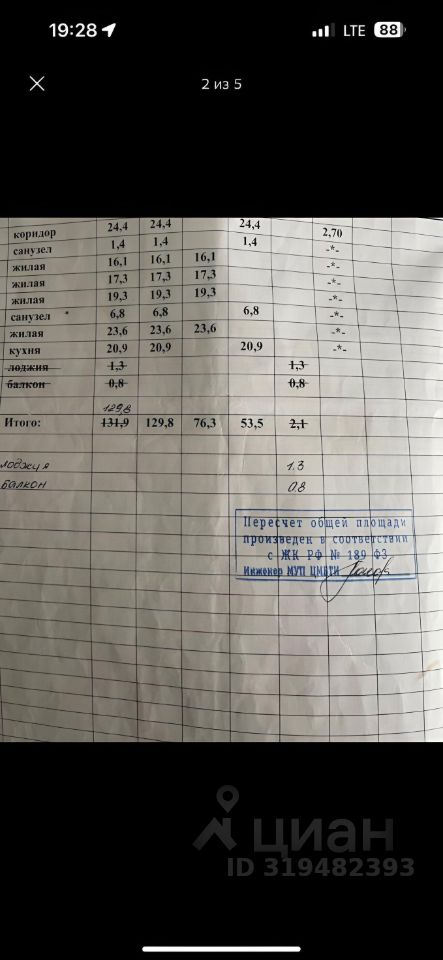 19:28 LTE 88
2 из 5
коридор 24,4 24,4 24,4 2,70
санузел 1,4 1,4 1,4 -*-
жилая 16,1 16,1 16,1 -*-
жилая 17,3 17,3 17,3 -*-
жилая 19,3 19,3 19,3 -*-
санузел 6,8 6,8 6,8 -*-
жилая 23,6 23,6 23,6 -*-
кухня 20,9 20,9 20,9 -*-
лоджия 1,3 1,3
балкон 0,8 0,8
129,8
Итого: 131,9 129,8 76,3 53,5 2,1
лоджия 1.3
балкон 0.8
Пересчет общей площади
произведен в соответствии
с ЖК РФ № 189 ФЗ
Инженер МУП ЦМБТИ
циан
ID 319482393